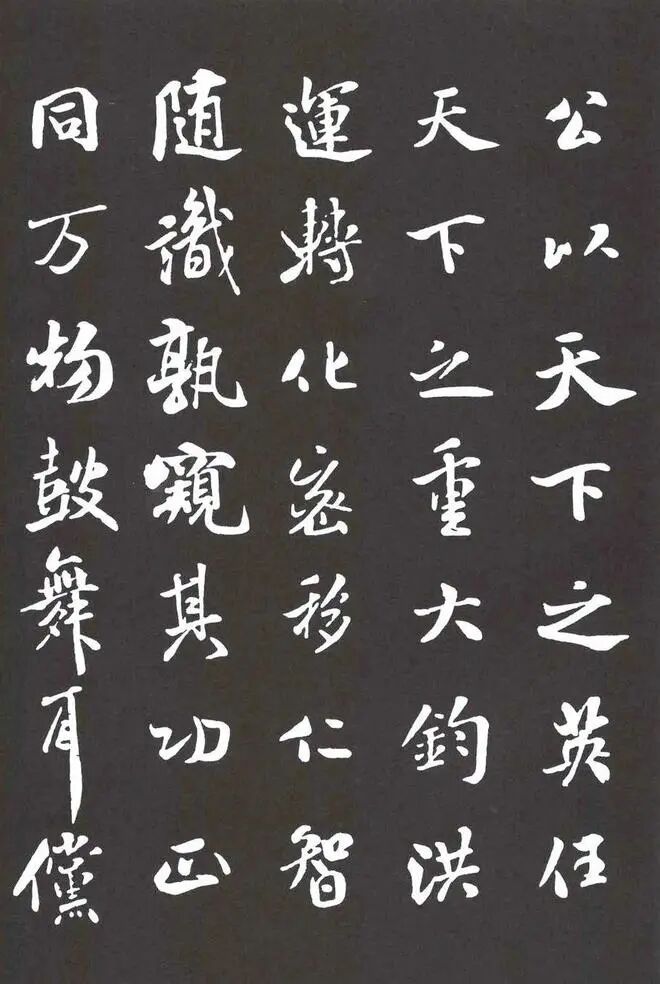 公以天下之英任
天下之重大鈞洪
運轉化密移仁智
随識孰窺其功正
同万物鼓舞耳儻